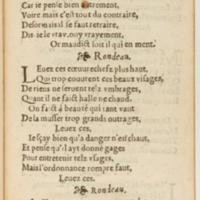 Car ie pense bien autrement,
Voire mais c'est tout du contraire,
Desormais il se faut retraire,
Dis ie le vray, ouy vrayement.
Or maudict soit il qui en ment.
Rondeau.
LEuez ces cœuurechefz plus haut,
Qui trop couurent ces beaux visages,
De riens ne seruent telz vmbrages,
Quant il ne faict halle ne chaud.
On fait à beauté qui tant vaut
De la musser trop grands outrages,
Leuez ces.
Ie sçay bien qu'à danger n'est chaut,
Et pense qu'il ayt donné gages
Pour entretenir telz vsages,
Mais l'ordonnance rompre faut,
Leuez ces.
Rondeau.